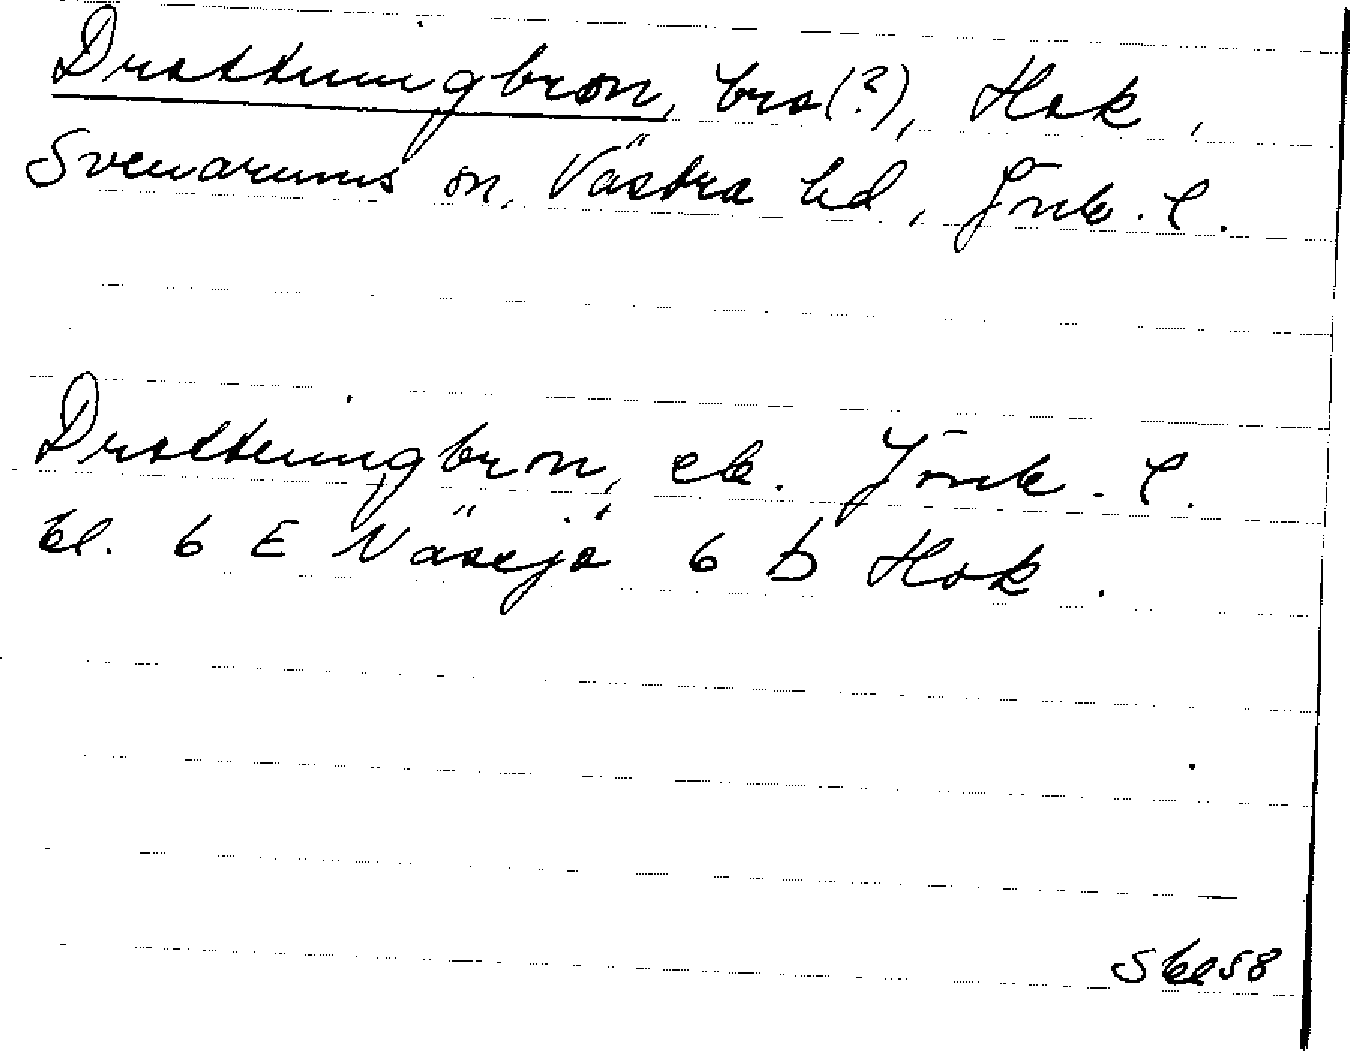 Drottningbron, bro(?), Hok,
Svenarums sn, Västra hd, Jönk. l.
Drottningbron, ek. Jönk. l.
bl. 6 E Nässjö 6 D Hok.
Skbl 58